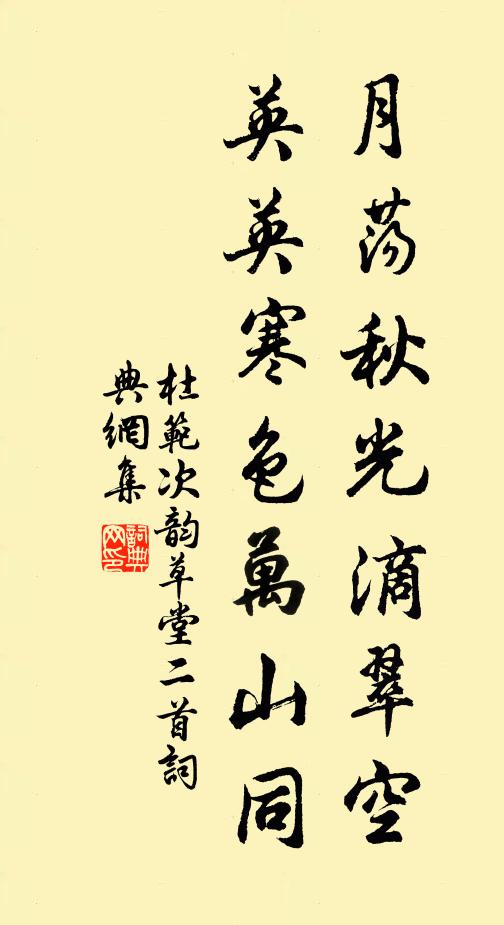 月蕩秋光滴翠空
英英寒色萬山同
杜範次韵草堂二首詞
典網集
詞典網印